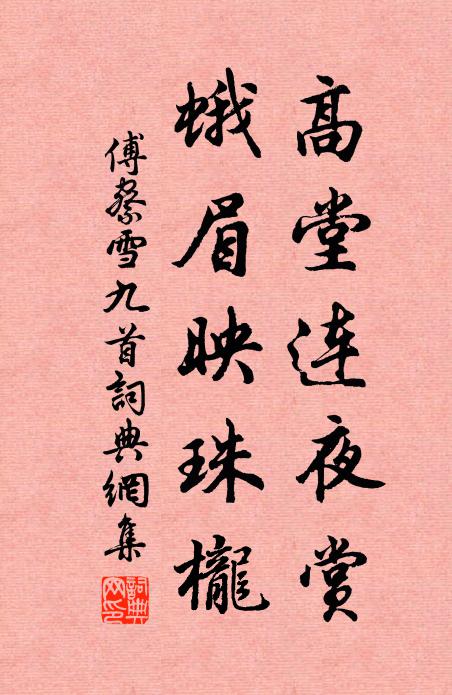 高堂连夜赏
蛾眉映珠櫳
傅察雪九首詞典網集
詞典
网印